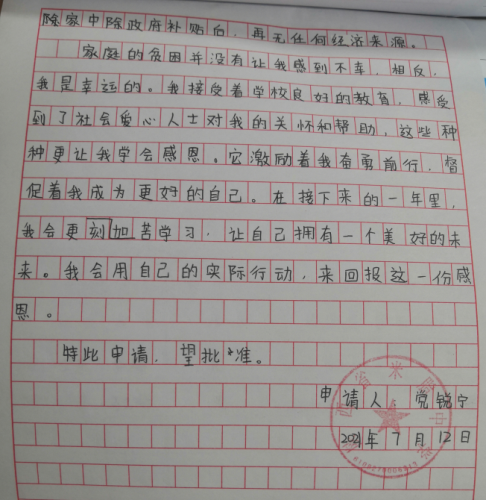 除家中除政府补贴向，再无任何经济来源。
家庭的贫困并没有让我感到不幸，相反，
我是幸运的。我接受着学校良好的教育，感受
到了社会爱心人士对我的关怀和帮助，这些种
种更让我学会感恩。它激励着我奋勇前行，督
促着我成为更好的自己。在接下来的一年里，
我会更刻加苦学习，让自己拥有一个美好的未
来。我会用自己的实际行动，来回报这一份感
恩。
特此申请，望批准。
申请人：党锐宁
2021年7月12日